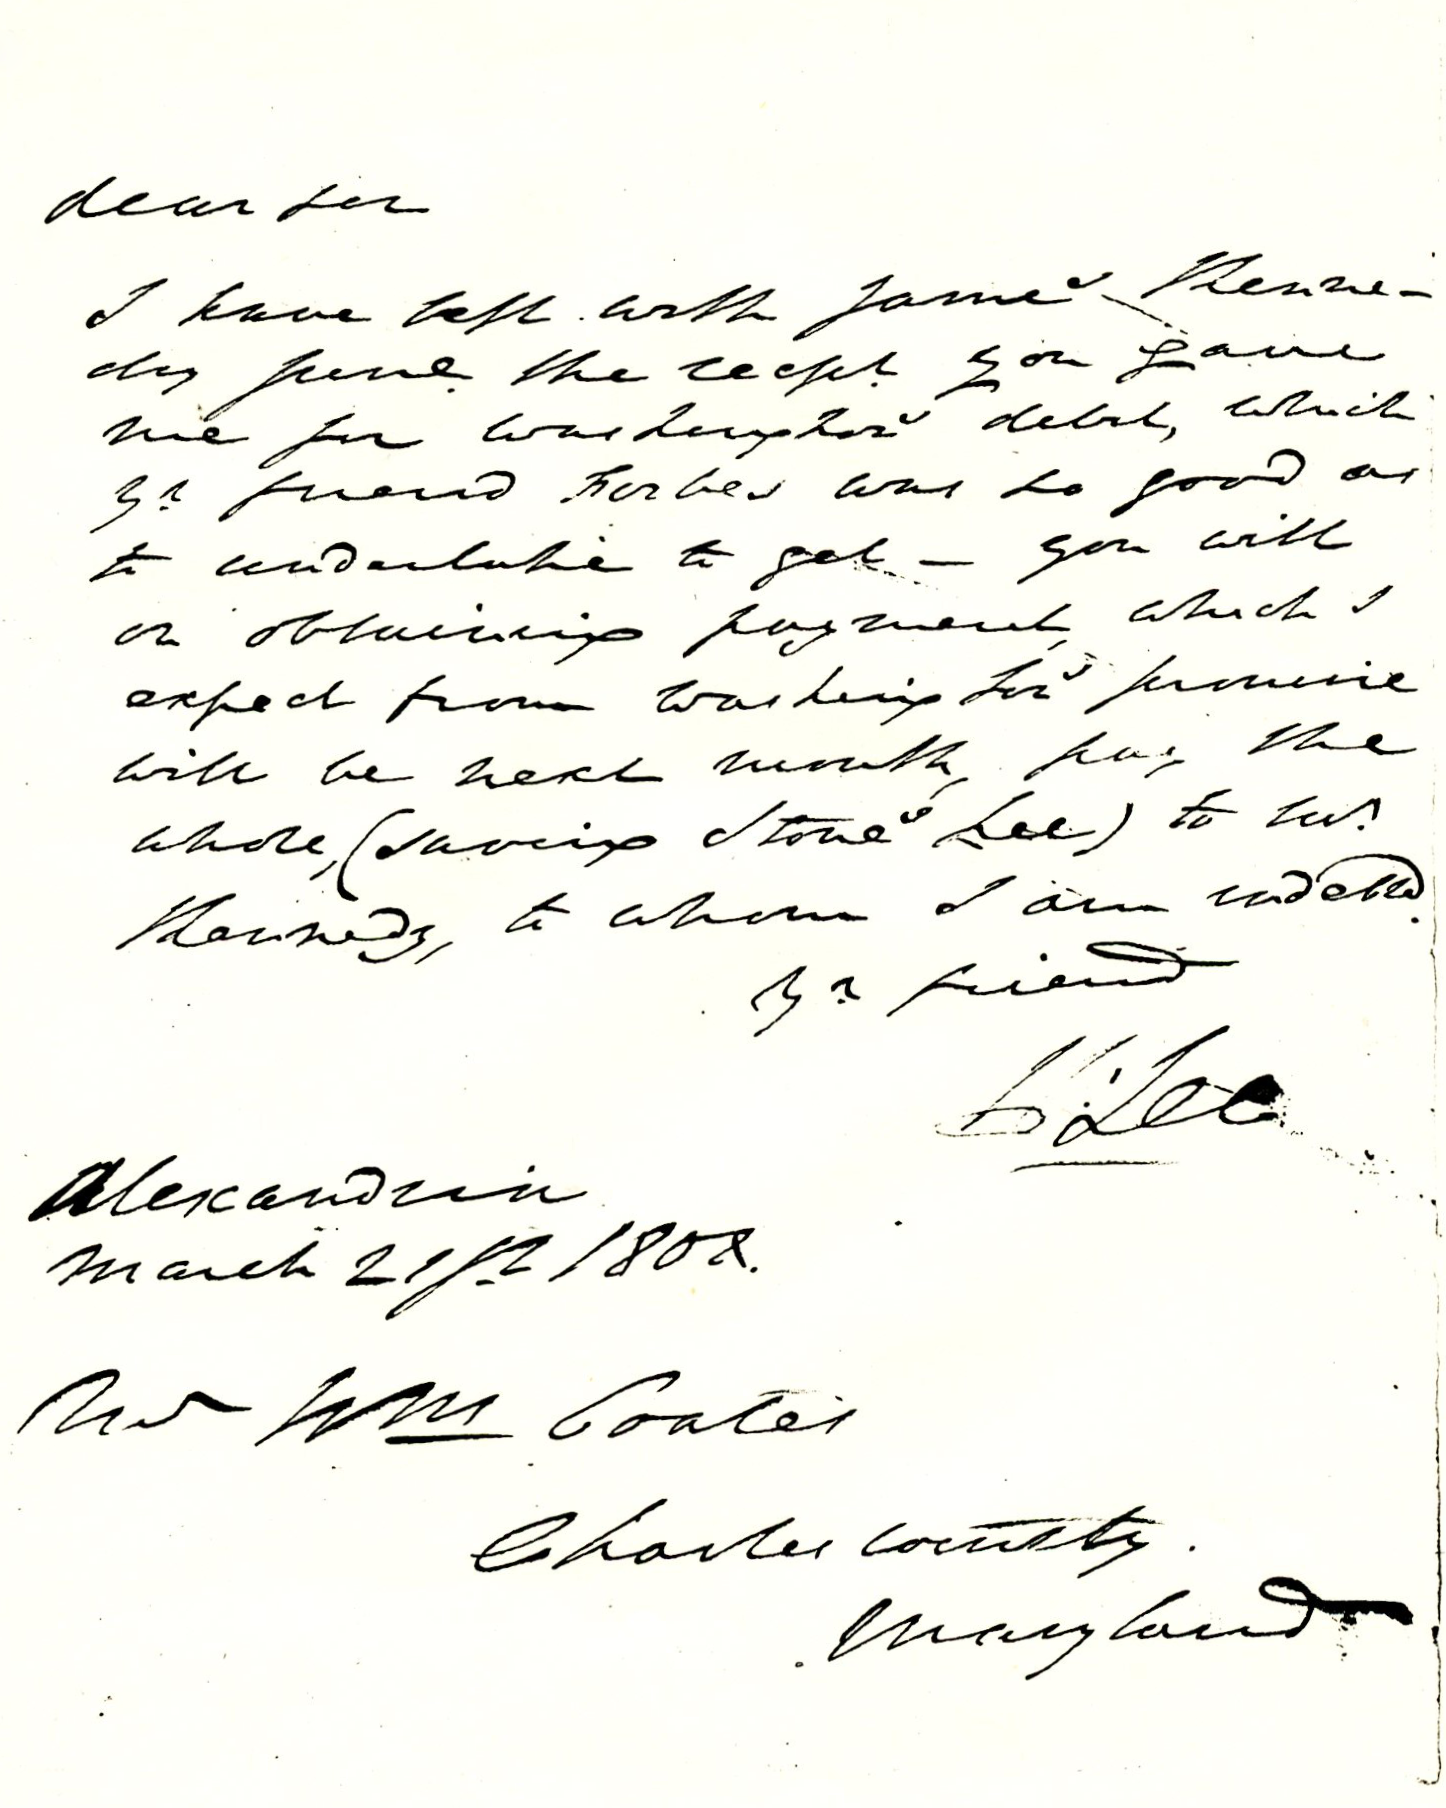 dear sir
I have left with James Kenne-
dy senr. the recept you gave
me for washingtons debt, which
yr friend Forbes was so good as
to undertake to get – you will
on obtaining payment, which I
expect from washingtons promise
will be next month, pay the
whole, (saving Stones fee) to mr
Kennedy, to whom I am indebted.
yr friend
H: Lee
Alexandria
March 21st 1808.
Mr Wm Coates
Charles county.
Maryland